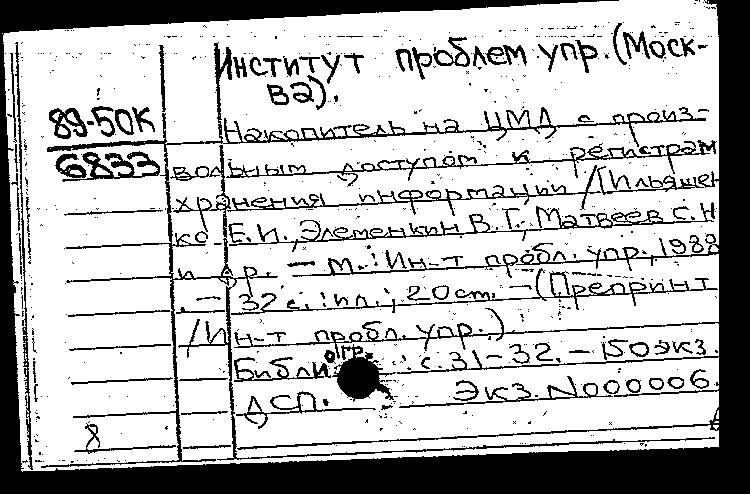 Институт проблем упр. (Моск-
ва).
89-50К
6833
Накопитель на ЦМД с произ-
вольным доступом к регистрам
хранения информации / [Ильяшен
ко Е.И., Элеменкин В.Г., Матвеев С.Н
и др. – М.: Ин-т пробл. упр., 1988
. – 32 с. : ил.; 20 ст. – (Препринт
/Ин-т пробл. упр.)
Библиогр. : с. 31–32. – 150 экз.
ДСП. Экз. N000006.
8